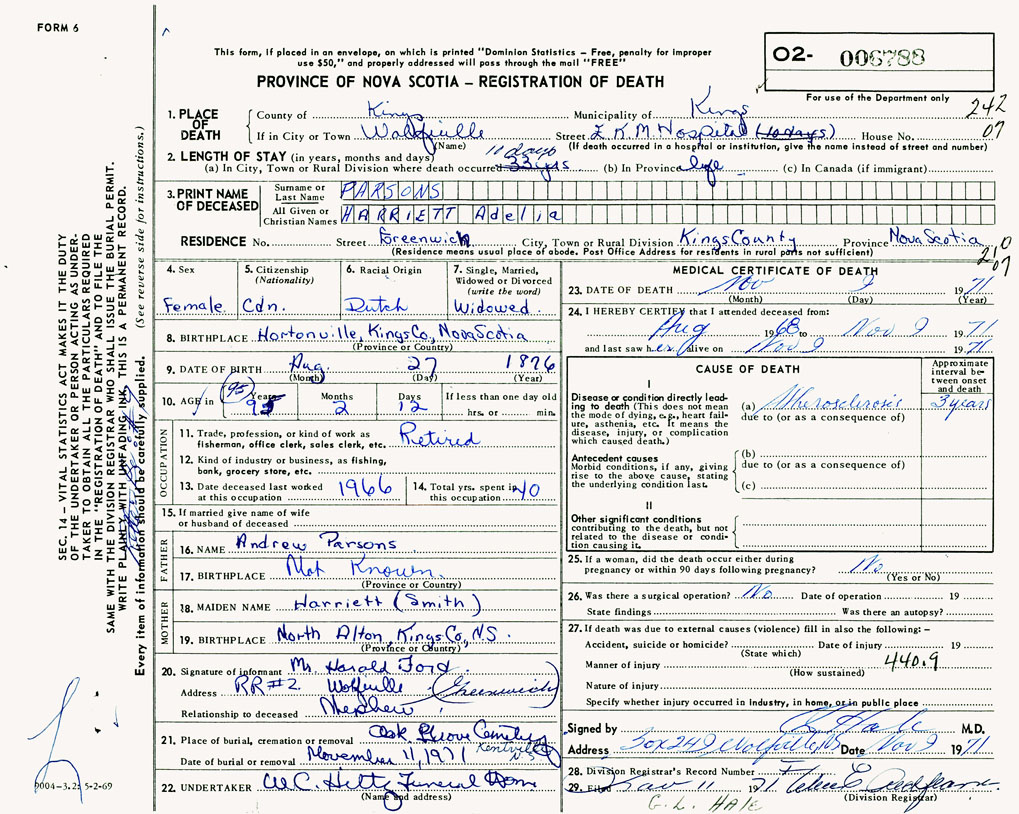 FORM 6
This form, if placed in an envelope, on which is printed "Dominion Statistics – Free, penalty for improper
use $50," and properly addressed will pass through the mail "FREE"
PROVINCE OF NOVA SCOTIA – REGISTRATION OF DEATH
02- 006788
For use of the Department only
242
07
1. PLACE OF DEATH
County of Kings Municipality of Kings
If in City or Town Wolfville Street E.K.M Hospital (10 days) House No.
(Name) (If death occurred in a hospital or institution, give the name instead of street and number)
2. LENGTH OF STAY (in years, months and days) 11 days
(a) In City, Town or Rural Division where death occurred 33 yrs (b) In Province life (c) In Canada (if immigrant)
3. PRINT NAME OF DECEASED
Surname or Last Name PARSONS
All Given or Christian Names HARRIETT Adelia
RESIDENCE No. Street Greenwich City, Town or Rural Division Kings County Province Nova Scotia
(Residence means usual place of abode. Post Office Address for residents in rural parts not sufficient)
210
07
4. Sex
Female
5. Citizenship
(Nationality)
Cdn.
6. Racial Origin
Dutch
7. Single, Married,
Widowed or Divorced
(write the word)
Widowed
8. BIRTHPLACE Hortonville, Kings Co, Nova Scotia
(Province or Country)
9. DATE OF BIRTH Aug. 27 1876
(Month) (Day) (Year)
10. AGE in (95) Years 95 Months 2 Days 12 If less than one day old
hrs. or min.
OCCUPATION
11. Trade, profession, or kind of work as
fisherman, office clerk, sales clerk, etc. Retired
12. Kind of industry or business, as fishing,
bank, grocery store, etc.
13. Date deceased last worked
at this occupation 1966
14. Total yrs. spent in
this occupation 40
15. If married give name of wife
or husband of deceased
FATHER
16. NAME Andrew Parsons
17. BIRTHPLACE Not Known.
(Province or Country)
MOTHER
18. MAIDEN NAME Harriett (Smith)
19. BIRTHPLACE North Alton, Kings Co, N.S.
(Province or Country)
20. Signature of informant Mr. Harold Ford.
Address RR#2 Wolfville (Greenwich)
Relationship to deceased Nephew
21. Place of burial, cremation or removal Oak Grove Cemetery
Kentville N.S.
Date of burial or removal November 11, 1971
22. UNDERTAKER W.C. Hiltz Funeral Home
(Name and address)
MEDICAL CERTIFICATE OF DEATH
23. DATE OF DEATH Nov 9 1971
(Month) (Day) (Year)
24. I HEREBY CERTIFY that I attended deceased from:
Aug 1968 to Nov 9 1971
and last saw her alive on Nov 9 1971
CAUSE OF DEATH
Approximate
interval be-
tween onset
and death
I
Disease or condition directly lead-
ing to death (This does not mean
the mode of dying, e.g., heart fail-
ure, asthenia, etc. It means the
disease, injury, or complication
which caused death.)
(a) Atherosclerosis 3 years
due to (or as a consequence of)
Antecedent causes
Morbid conditions, if any, giving
rise to the above cause, stating
the underlying condition last.
(b)
due to (or as a consequence of)
(c)
II
Other significant conditions
contributing to the death, but not
related to the disease or condi-
tion causing it.
25. If a woman, did the death occur either during
pregnancy or within 90 days following pregnancy? No
(Yes or No)
26. Was there a surgical operation? No Date of operation 19
State findings Was there an autopsy?
27. If death was due to external causes (violence) fill in also the following: –
Accident, suicide or homicide? Date of injury 19
(State which)
Manner of injury 440.9
(How sustained)
Nature of injury
Specify whether injury occurred in industry, in home, or in public place
Signed by M.D.
Address Box 249 Wolfville NS Date Nov 9 1971
28. Division Registrar's Record Number
29. Filed Nov 11 1971
(Division Registrar)
G. L. HALE
SEC. 14 – VITAL STATISTICS ACT MAKES IT THE DUTY
OF THE UNDERTAKER OR PERSON ACTING AS UNDER-
TAKER TO OBTAIN ALL THE PARTICULARS REQUIRED
IN THE "REGISTRATION OF DEATH" AND TO FILE THE
SAME WITH THE DIVISION REGISTRAR WHO SHALL ISSUE THE BURIAL PERMIT.
WRITE PLAINLY WITH UNFADING INK, THIS IS A PERMANENT RECORD.
Every item of information should be carefully supplied. (See reverse side for instructions.)
9004-3.2: 5-2-69